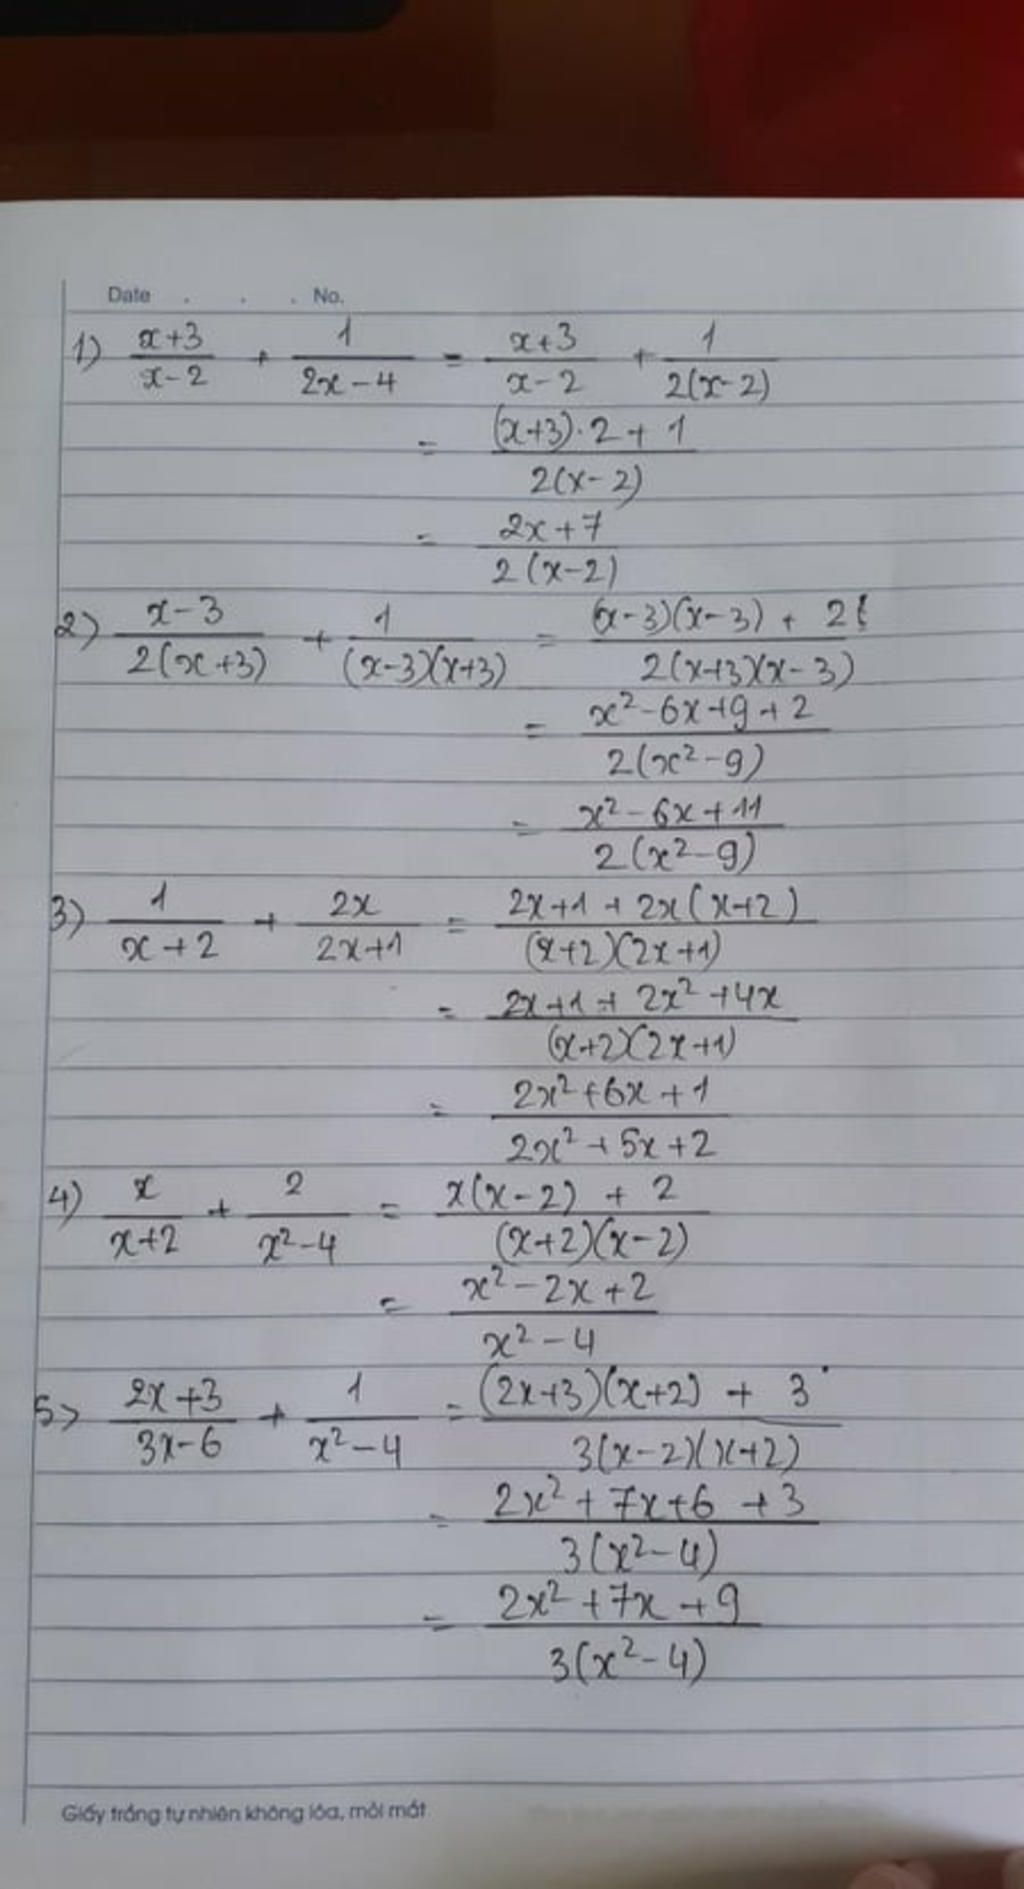 Date . . . No.
1) \frac{x+3}{x-2} + \frac{1}{2x-4} = \frac{x+3}{x-2} + \frac{1}{2(x-2)}
= \frac{(x+3)·2+1}{2(x-2)}
= \frac{2x+7}{2(x-2)}
2) \frac{x-3}{2(x+3)} + \frac{1}{(x-3)(x+3)} = \frac{(x-3)(x-3) + 2}{2(x+3)(x-3)}
= \frac{x^2-6x+9+2}{2(x^2-9)}
= \frac{x^2-6x+11}{2(x^2-9)}
3) \frac{1}{x+2} + \frac{2x}{2x+1} = \frac{2x+1+2x(x+2)}{(x+2)(2x+1)}
= \frac{2x+1+2x^2+4x}{(x+2)(2x+1)}
= \frac{2x^2+6x+1}{2x^2+5x+2}
4) \frac{x}{x+2} + \frac{2}{x^2-4} = \frac{x(x-2)+2}{(x+2)(x-2)}
= \frac{x^2-2x+2}{x^2-4}
5) \frac{2x+3}{3x-6} + \frac{1}{x^2-4} = \frac{(2x+3)(x+2)+3}{3(x-2)(x+2)}
= \frac{2x^2+7x+6+3}{3(x^2-4)}
= \frac{2x^2+7x+9}{3(x^2-4)}
Giấy trắng tự nhiên không lóa, mỏi mắt